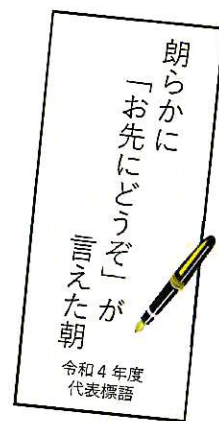 朗らかに
「お先にどうぞ」が
言えた朝
令和4年度
代表標語